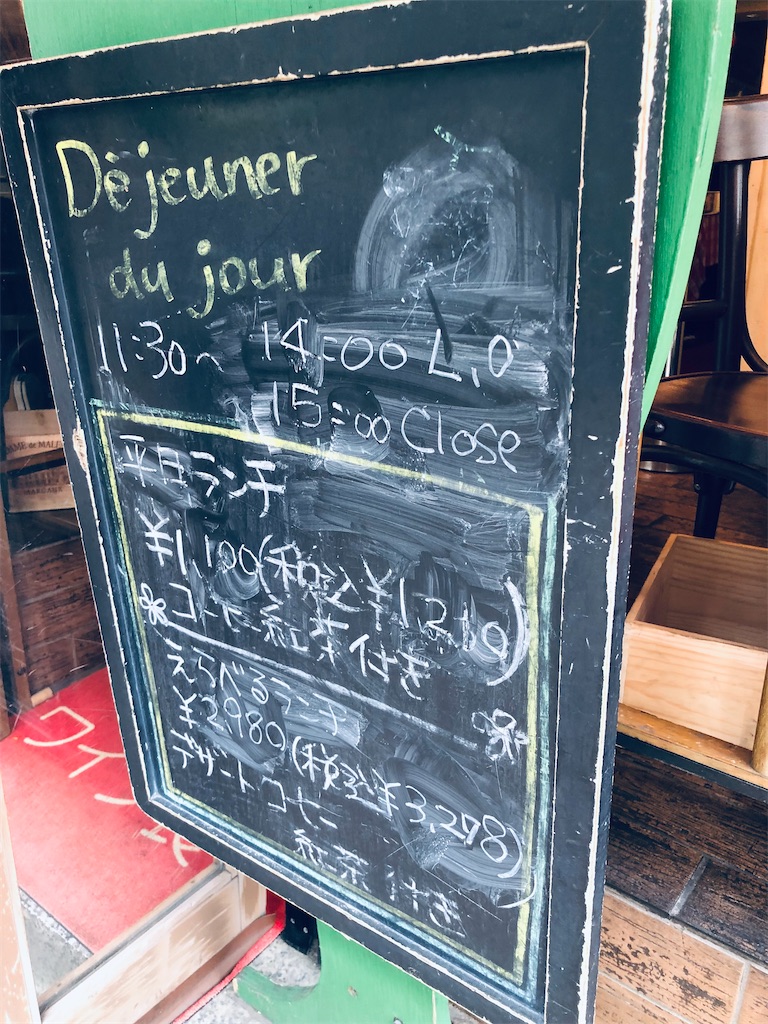 Déjeuner
du jour
11:30~ 14:00 L.O
15:00 Close
平日ランチ
¥1,100(税込¥1,210)
コーヒー紅茶付き
えらべるランチ
¥2,980(税込¥3,278)
デザートコーヒー
紅茶付き
ワイン